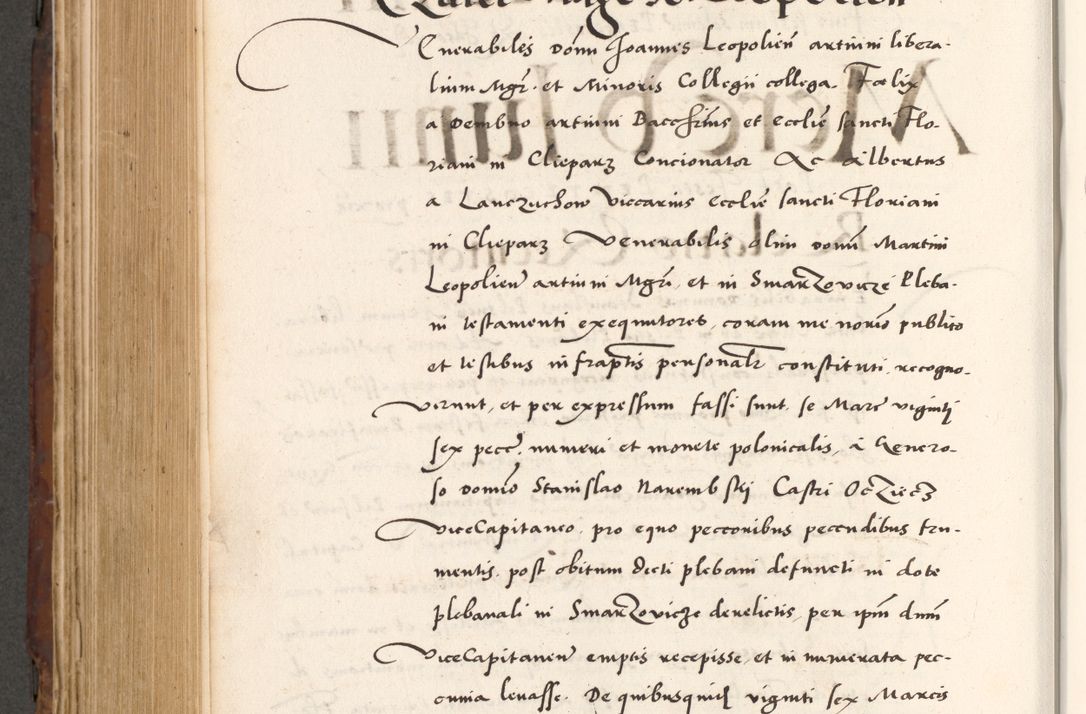 Venerabiles domi Joannes Leopolien artium libera-
lium Mgr. et Minoris Collegii collega. Fœlix
a Dembno artium Bacchrius et ecclie sancti Flo-
riani in Clieparz Concionator Ac Albertus
a Lanczuchow Viccarius ecclie sancti Floriani
in Clieparz Venerabilis olim domi Martini
Leopolien artium Mgri, et in Smarzovicze Pleba-
ni testamenti exequutores, coram me norio publico
et testibus infraptis personalr constituti, recogno-
verunt, et per expressum fassi sunt, se Marc viginti
sex pecc. numeri et monete polonicalis, a Genero-
so domino Stanislao Narembski Castri Ocziecz
ViceCapitaneo, pro equo peccoribus pecudibus fru-
mentis, post obitum dicti plebani defuncti in dote
plebanali in Smarzovicze derelictis, per ipm dnm
ViceCapitaneum emptis recepisse, et in numerata pec-
cunia levasse. De quibusquid viginti sex Marcis